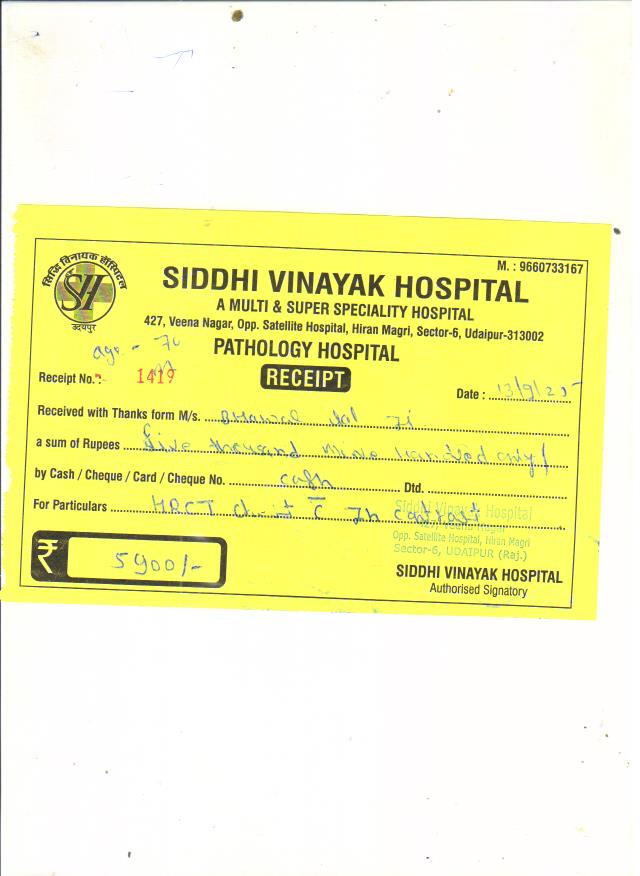 M. : 9660733167
सिद्धि विनायक हॉस्पिटल
SVH
उदयपुर
SIDDHI VINAYAK HOSPITAL
A MULTI & SUPER SPECIALITY HOSPITAL
427, Veena Nagar, Opp. Satellite Hospital, Hiran Magri, Sector-6, Udaipur-313002
PATHOLOGY HOSPITAL
age - 70
Receipt No. : 1419
RECEIPT
Date : 13/9/25
Received with Thanks form M/s. lal Ji
a sum of Rupees five thousand Nine Hundred only/
by Cash / Cheque / Card / Cheque No. cash Dtd.
For Particulars HRCT
Siddhi Vinayak Hospital
427, Veena Nagar
Opp. Satellite Hospital, Hiran Magri
Sector-6, UDAIPUR (Raj.)
₹ 5900/-
SIDDHI VINAYAK HOSPITAL
Authorised Signatory